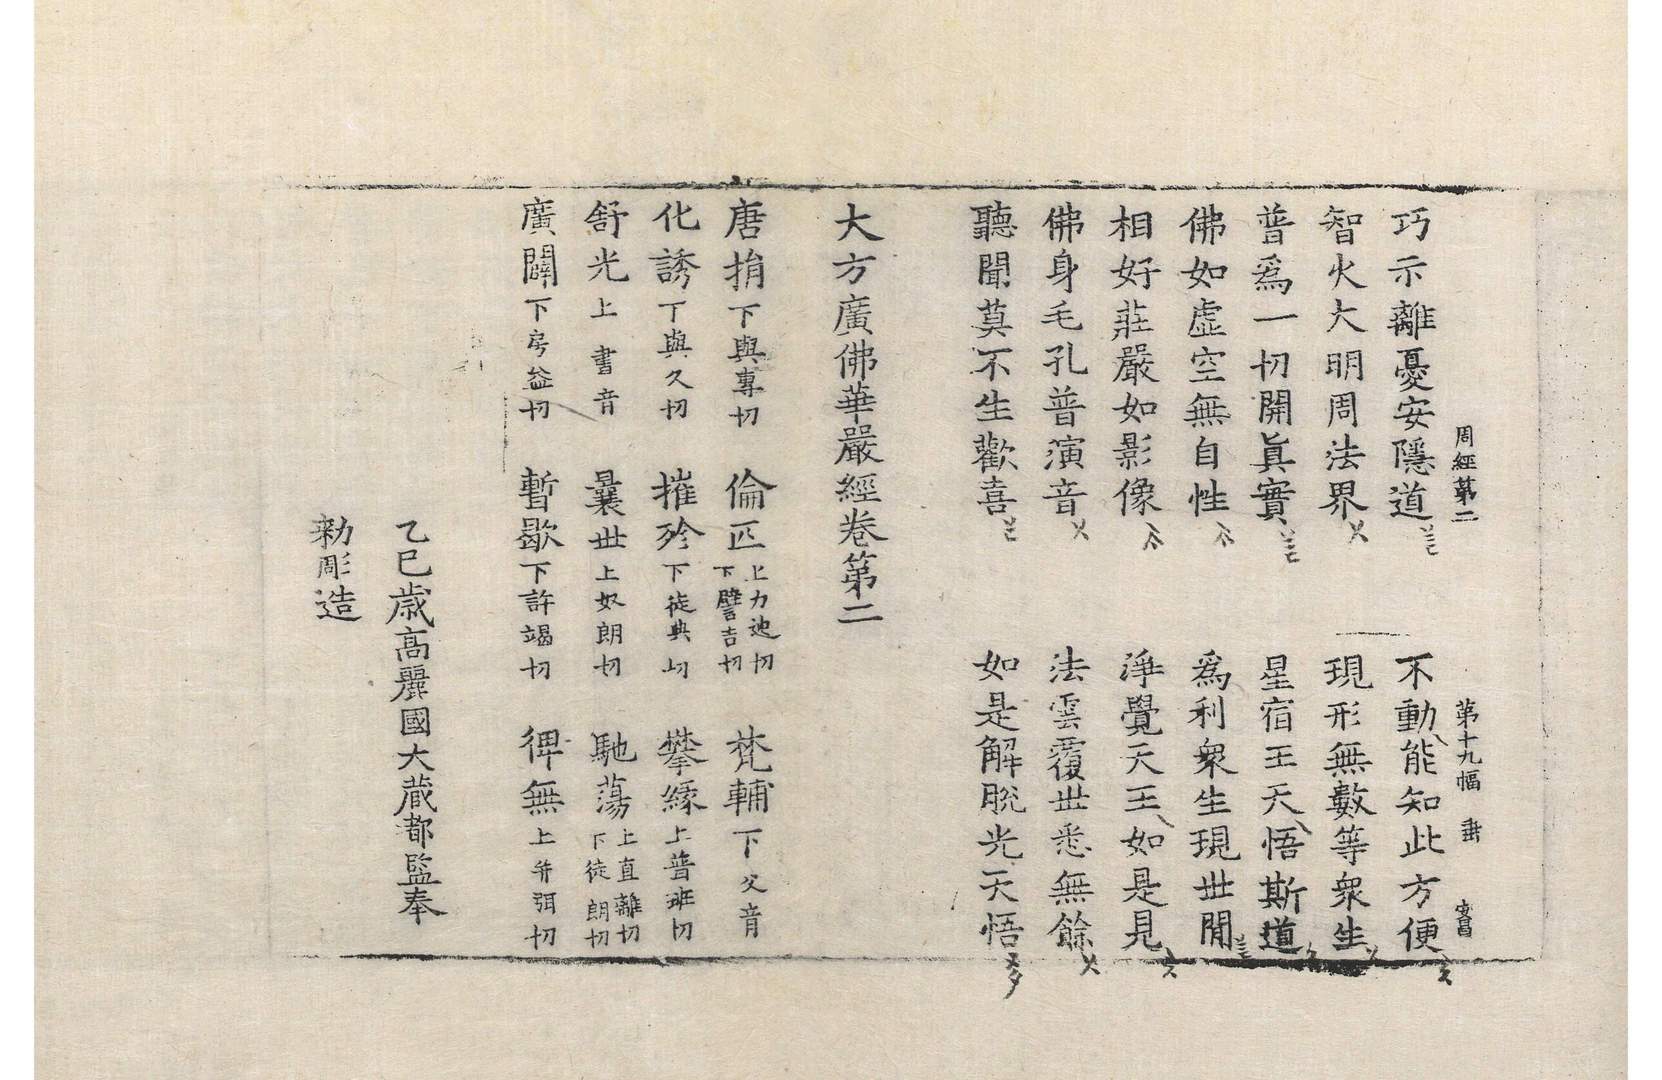 周經第二 第十九幅 垂
巧示離憂安隱道 不動能知此方便
智火大明周法界 現形無數等衆生
普爲一切開眞實 星宿王天悟斯道
佛如虛空無自性 爲利衆生現世間
相好莊嚴如影像 淨覺天王如是見
佛身毛孔普演音 法雲覆世悉無餘
聽聞莫不生歡喜 如是解脫光天悟
大方廣佛華嚴經卷第二
唐捐下與專切 倫匹上力迍切下譬吉切 梵輔下父音
化誘下與久切 摧殄下徒典切 攀緣上普班切
舒光上書音 曩世上奴朗切 馳蕩上直離切下徒朗切
廣闢下房益切 暫歇下許竭切 俾無上幷弭切
乙巳歲高麗國大藏都監奉
勑彫造